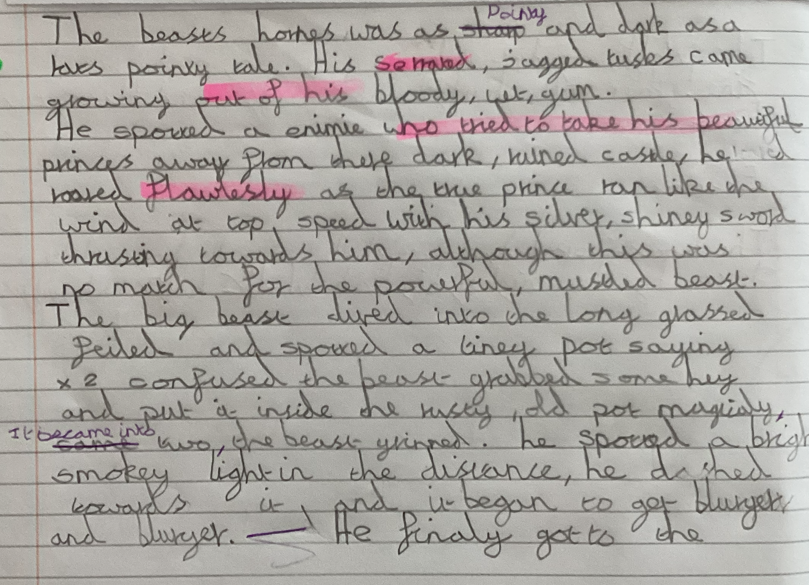 The beasts hornes was as sharp Poinay and dark as a
taes poinxy tale. His serrated, jagged tusks came
growing out of his bloody, wet, gum.
He spoted a enimie who tried to take his beautiful
princes away from there dark, ruined castle, he
roared flawlesly as the true prince ran like the
wind at top speed with his silver, shiney sword
thrusting towards him, although this was
no match for the powerful, muscled beast.
The big beast dived into the long grassed
feiled and spoted a tiney pot saying
x2 confused the beast grabbed some hey
and put it inside the rusty, old pot magicaly,
It became into came two, the beast grinned. he spoted a brigh
smokey light in the distance, he dashed
towards it and it began to get bluryer
and bluryer. — He finaly got to the